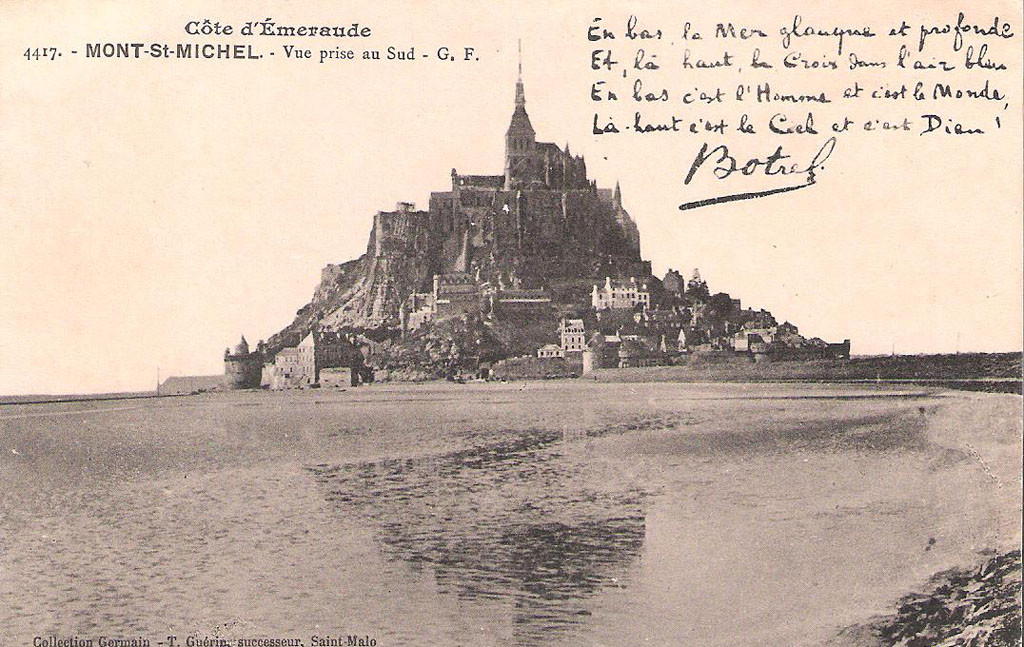 Côte d'Émeraude
4417. - MONT-St-MICHEL. - Vue prise au Sud - G. F.
En bas la Mer glauque et profonde
Et, là haut, la Croix dans l'air bleu
En bas c'est l'Homme et c'est le Monde,
Là-haut c'est le Ciel et c'est Dieu !
Botrel.
Collection Germain - T. Guérin, successeur, Saint-Malo